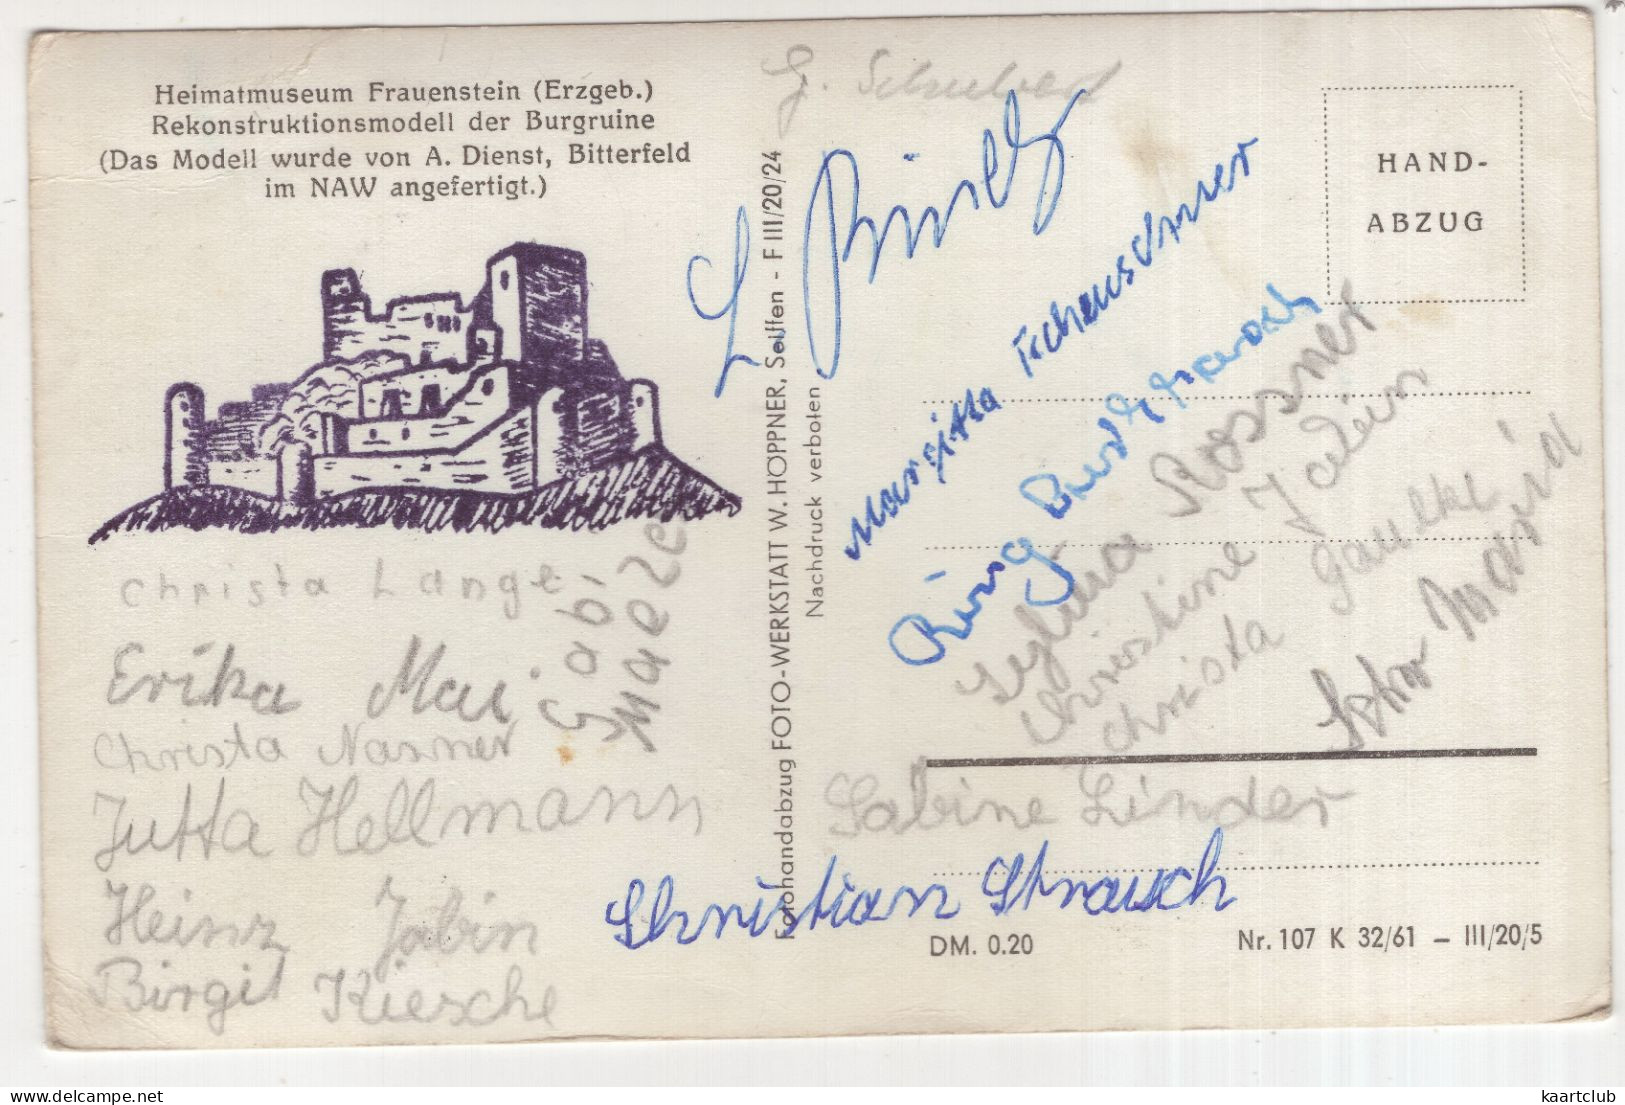 Heimatmuseum Frauenstein (Erzgeb.)
Rekonstruktionsmodell der Burgruine
(Das Modell wurde von A. Dienst, Bitterfeld
im NAW angefertigt.)
Christa Lange
Gabi
Erika Mai
Christa Nasner
Jutta Hellmann
Heinz Jobin
Birgit Kiesche
Fotohandabzug FOTO-WERKSTATT W. HOPPNER, Seiffen - F III/20/24
Nachdruck verboten
G. Schubert
L.
Margitta Tschauschner
HAND-
ABZUG
Rossner
Christine
Christa Gaulke
Maria
Sabine Linder
Christian Strausch
DM. 0.20
Nr. 107 K 32/61 – III/20/5
kaartclub